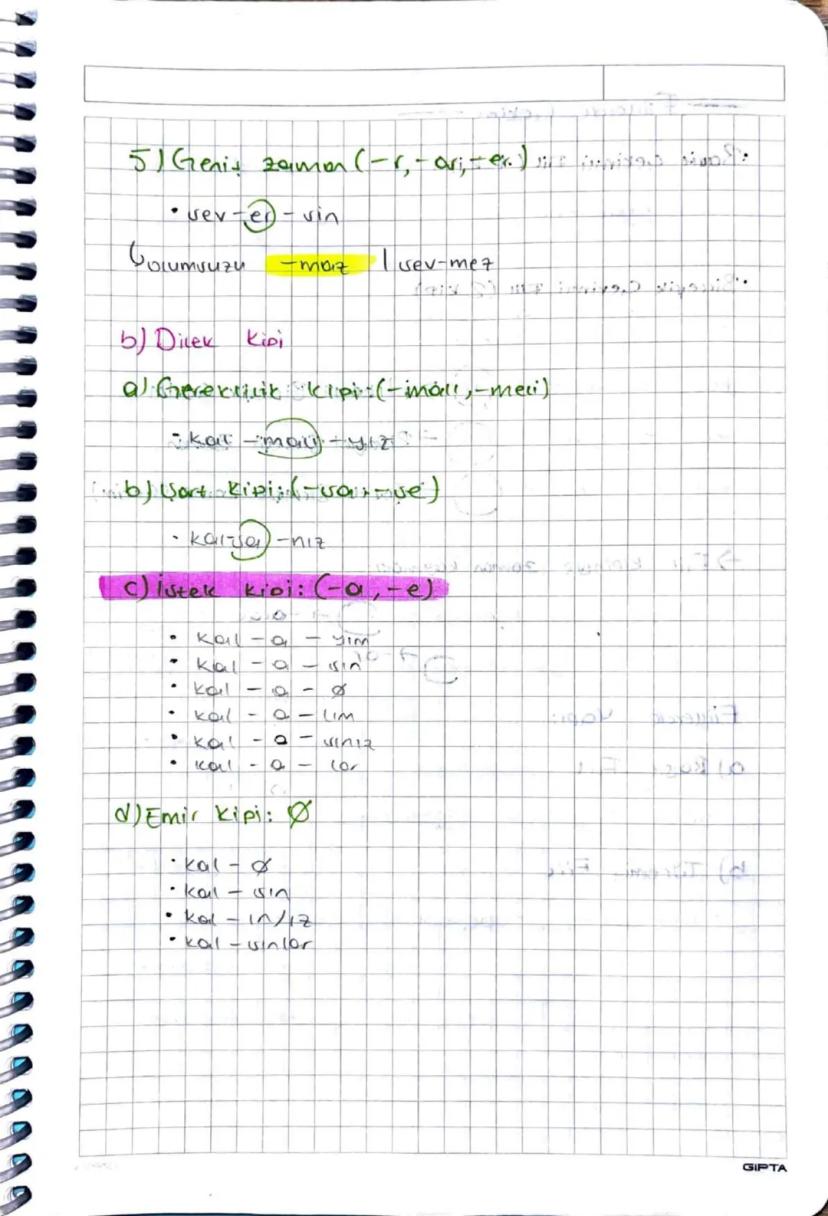 5) Geniş zaman (-r, -ar, -er)
• sev-er-sin
↳ olumsuzu -maz | sev-mez
b) Dilek Kipi
a) Gereklilik Kipi: (-malı, -meli)
• kal-malı-yız
b) Şart Kipi: (-sa, -se)
• kal-sa-nız
c) İstek Kipi: (-a, -e)
• kal - a - yım
• kal - a - sın
• kal - a - Ø
• kal - a - lım
• kal - a - sınız
• kal - a - lar
d) Emir Kipi: Ø
• kal - Ø
• kal - sın
• kal - ın/ız
• kal - sınlar
GIPTA